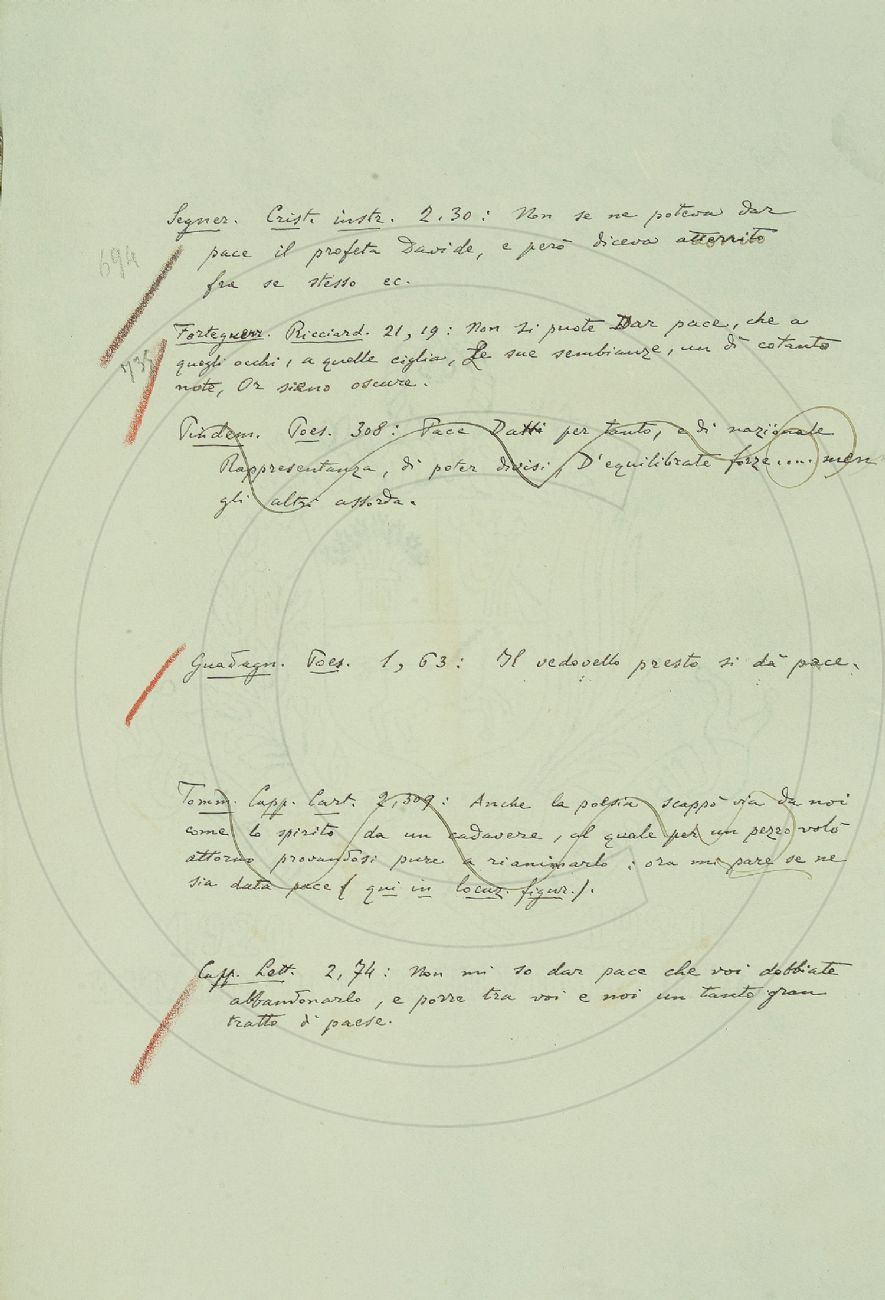 Segner. Crist. instr. 2.30: Non se ne poteva dar
694
pace il profeta Davide, e però diceva atterrito
fra se stesso ec.
Forteguerr. Ricciard. 21, 19: Non si puote Dar pace, che a
735
quegli occhi, a quelle ciglia, Le sue sembianze, un dì cotanto
note, Or sieno oscure.
Pindem. Poes. 308: Pace Datti per tanto, e di nazionale
Rappresentanza, di poter divisi, D'equilibrate forze .... men
gli altri assorda.
Guadagn. Poes. 1, 63: Il vedovello presto si dà pace.
Tomm. Capp. Cart. 2, 309: Anche la poesia scappò via da noi
come lo spirito da un cadavere, al quale per un pezzo volò
attorno provandosi pure a rianimarlo; ora mi pare se ne
sia data pace (qui in locuz. figur.).
Capp. Lett. 2, 74: Non mi so dar pace che voi dobbiate
abbandonarlo, e porre tra voi e noi un tanto gran
tratto di paese.